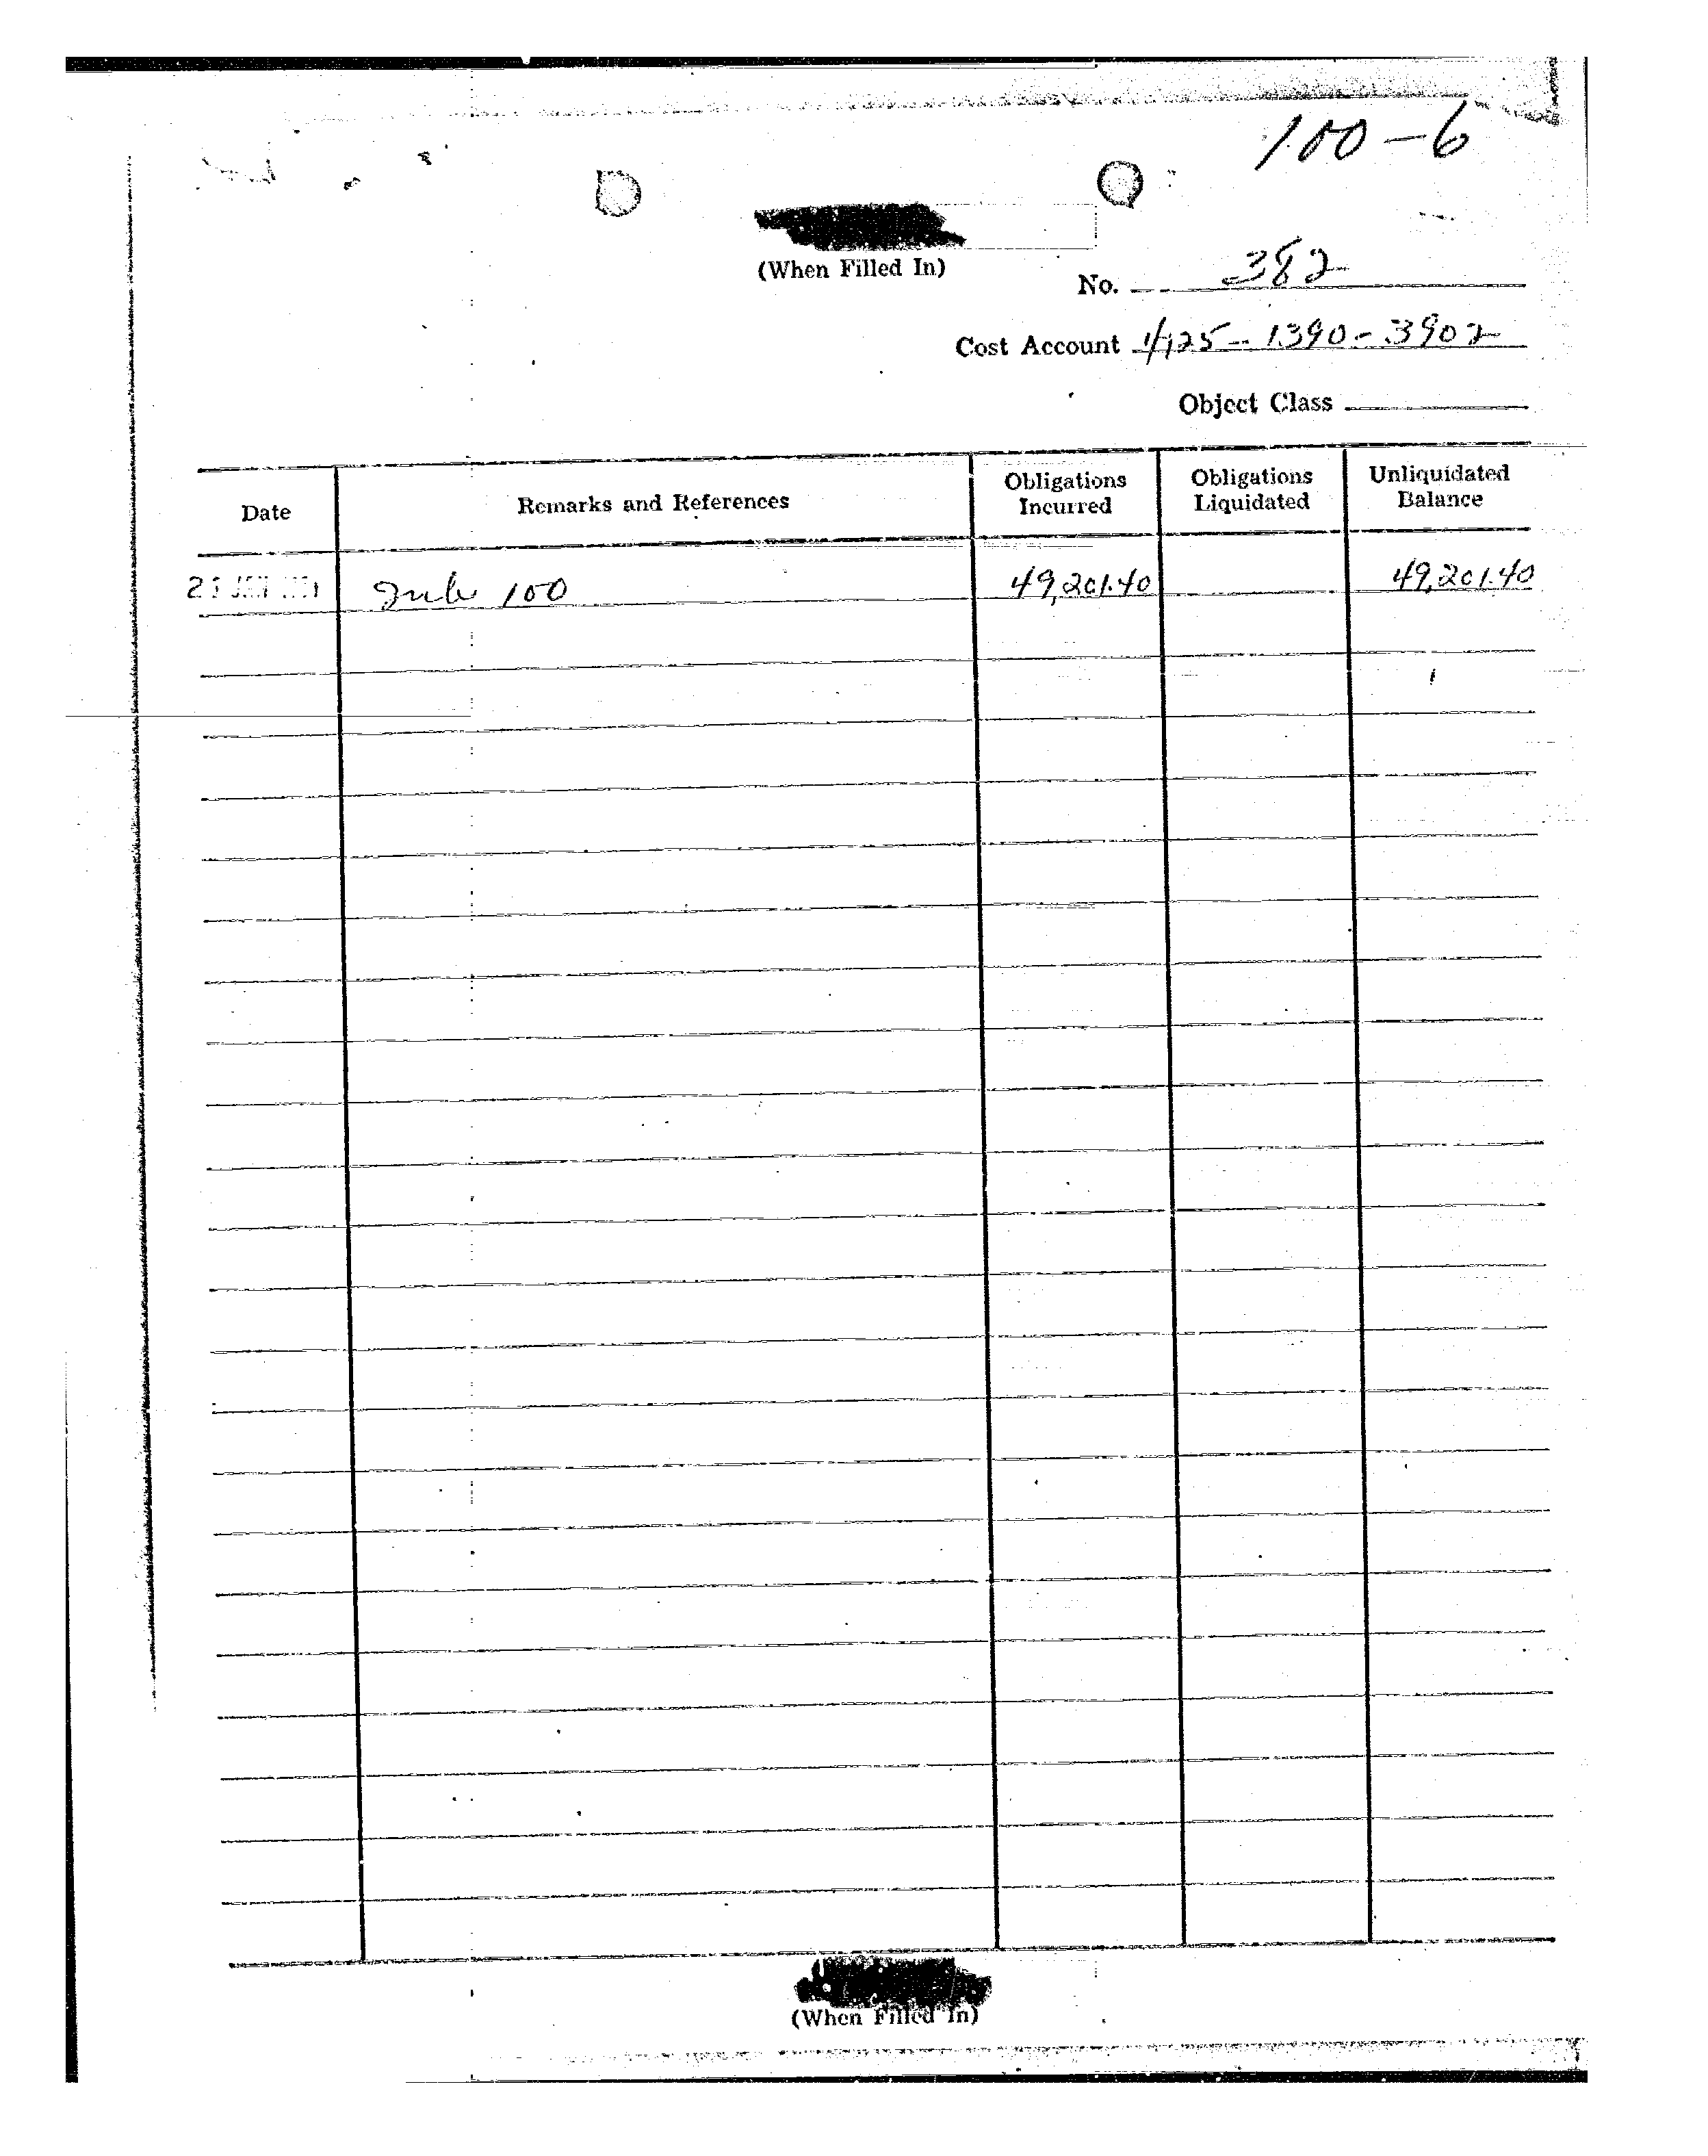 100-6
(When Filled In)
No. 382
Cost Account 4125-1390-3902
Object Class
Date Remarks and References Obligations Incurred Obligations Liquidated Unliquidated Balance
100 49,201.40 49,201.40
(When Filled In)